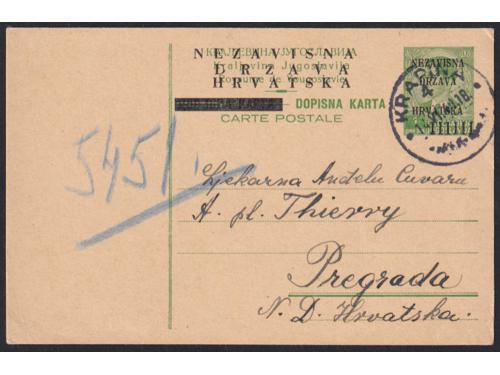 КРАЉЕВИНА ЈУГОСЛАВИЈА
Kraljevina Jugoslavija
Royaume de Yougoslavie
NEZAVISNA
DRŽAVA
HRVATSKA
DOPISNA KARTA
CARTE POSTALE
NEZAVISNA
DRŽAVA
HRVATSKA
KRAPINA
5451
Ljekarna Anđelu Čuvaru
A. pl. Thierry
Pregrada
N. D. Hrvatska.